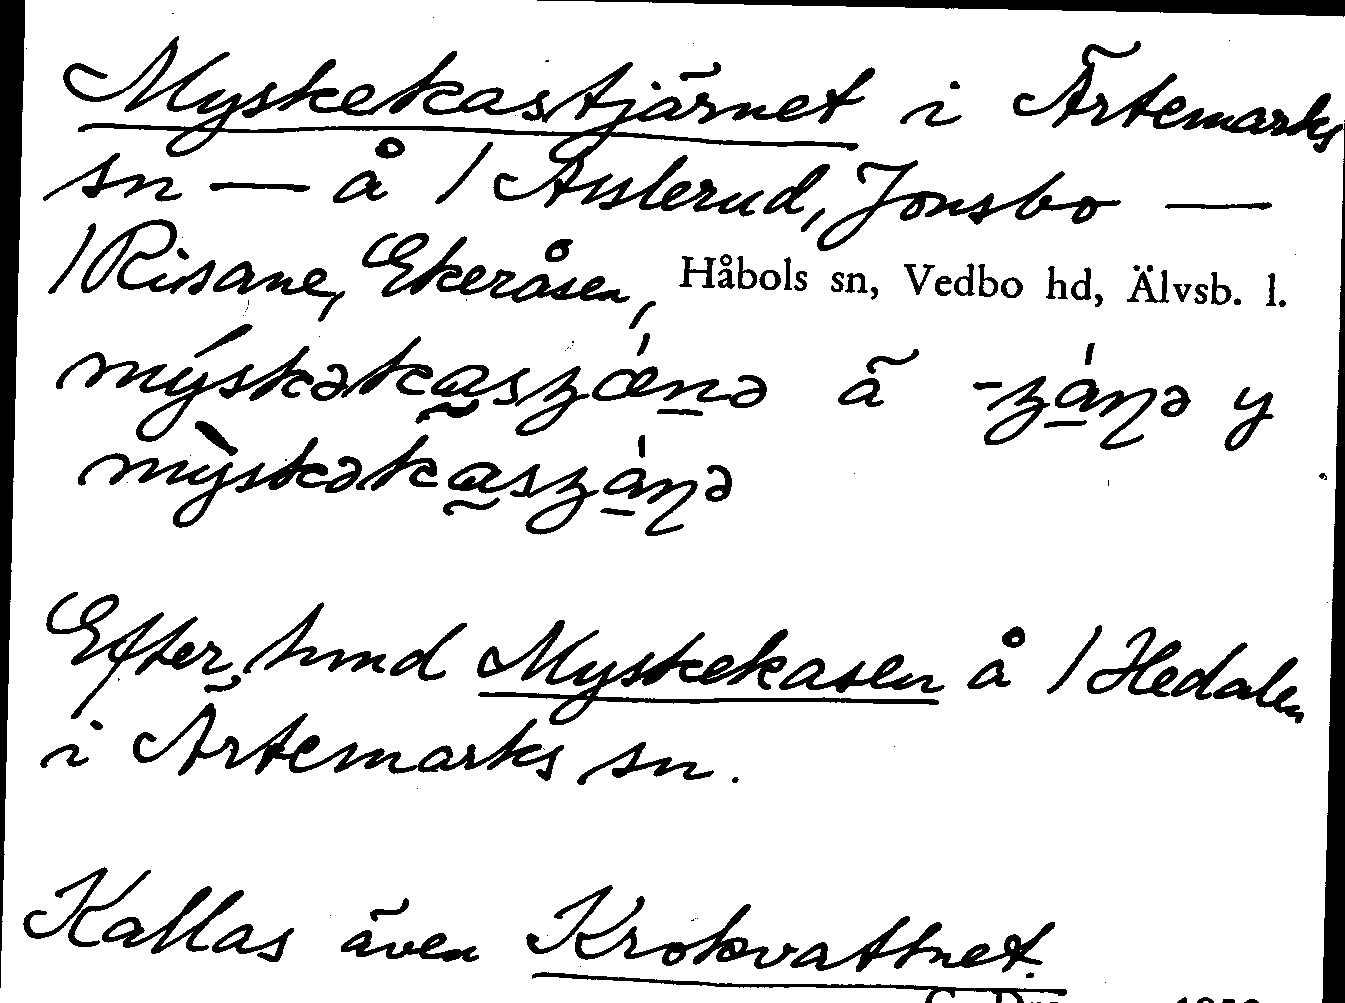 Myskekastjärnet i Ärtemarks
sn — å / Aslerud, Jonsbo —
/ Risane, Ekeråsen, Håbols sn, Vedbo hd, Älvsb. l.
mýskəkas̡zǽnə ä -zánə y
mỳskəkaszánə
Efter hmd Myskekasen å / Hedalen
i Ärtemarks sn.
Kallas även Krokvattnet.